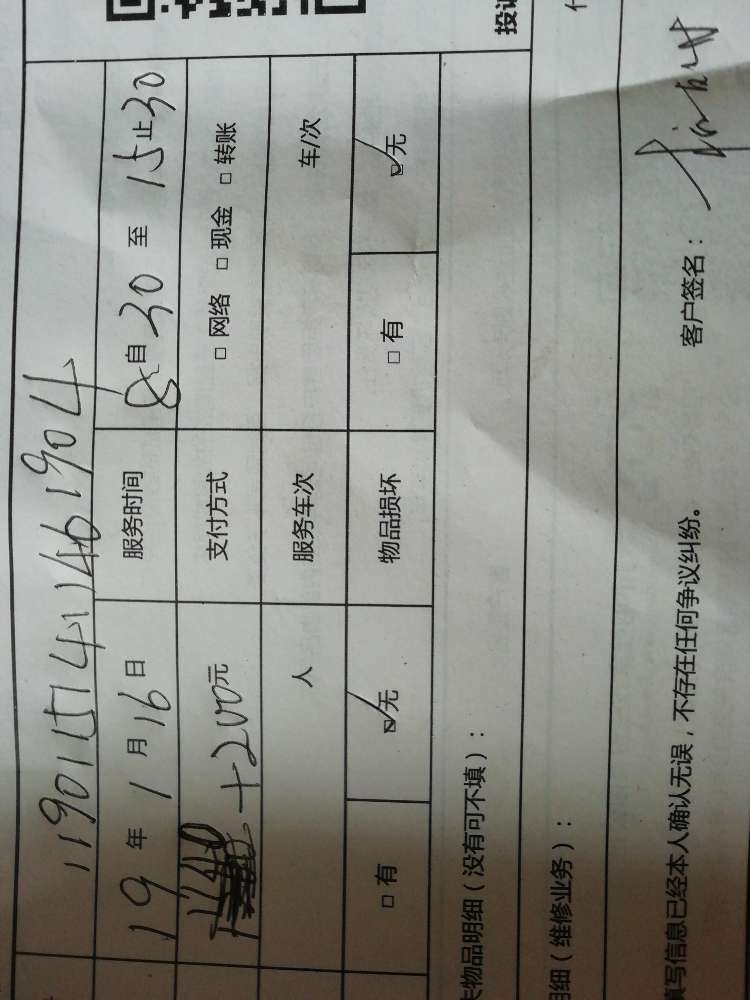 投诉
190115141461904
19年1月16日 服务时间 8自30至15止30
+200元 支付方式 □网络 □现金 □转账
人 服务车次 车/次
□有 ☑无 物品损坏 □有 ☑无
失物品明细（没有可不填）：
明细（维修业务）：
填写信息已经本人确认无误，不存在任何争议纠纷。 客户签名：